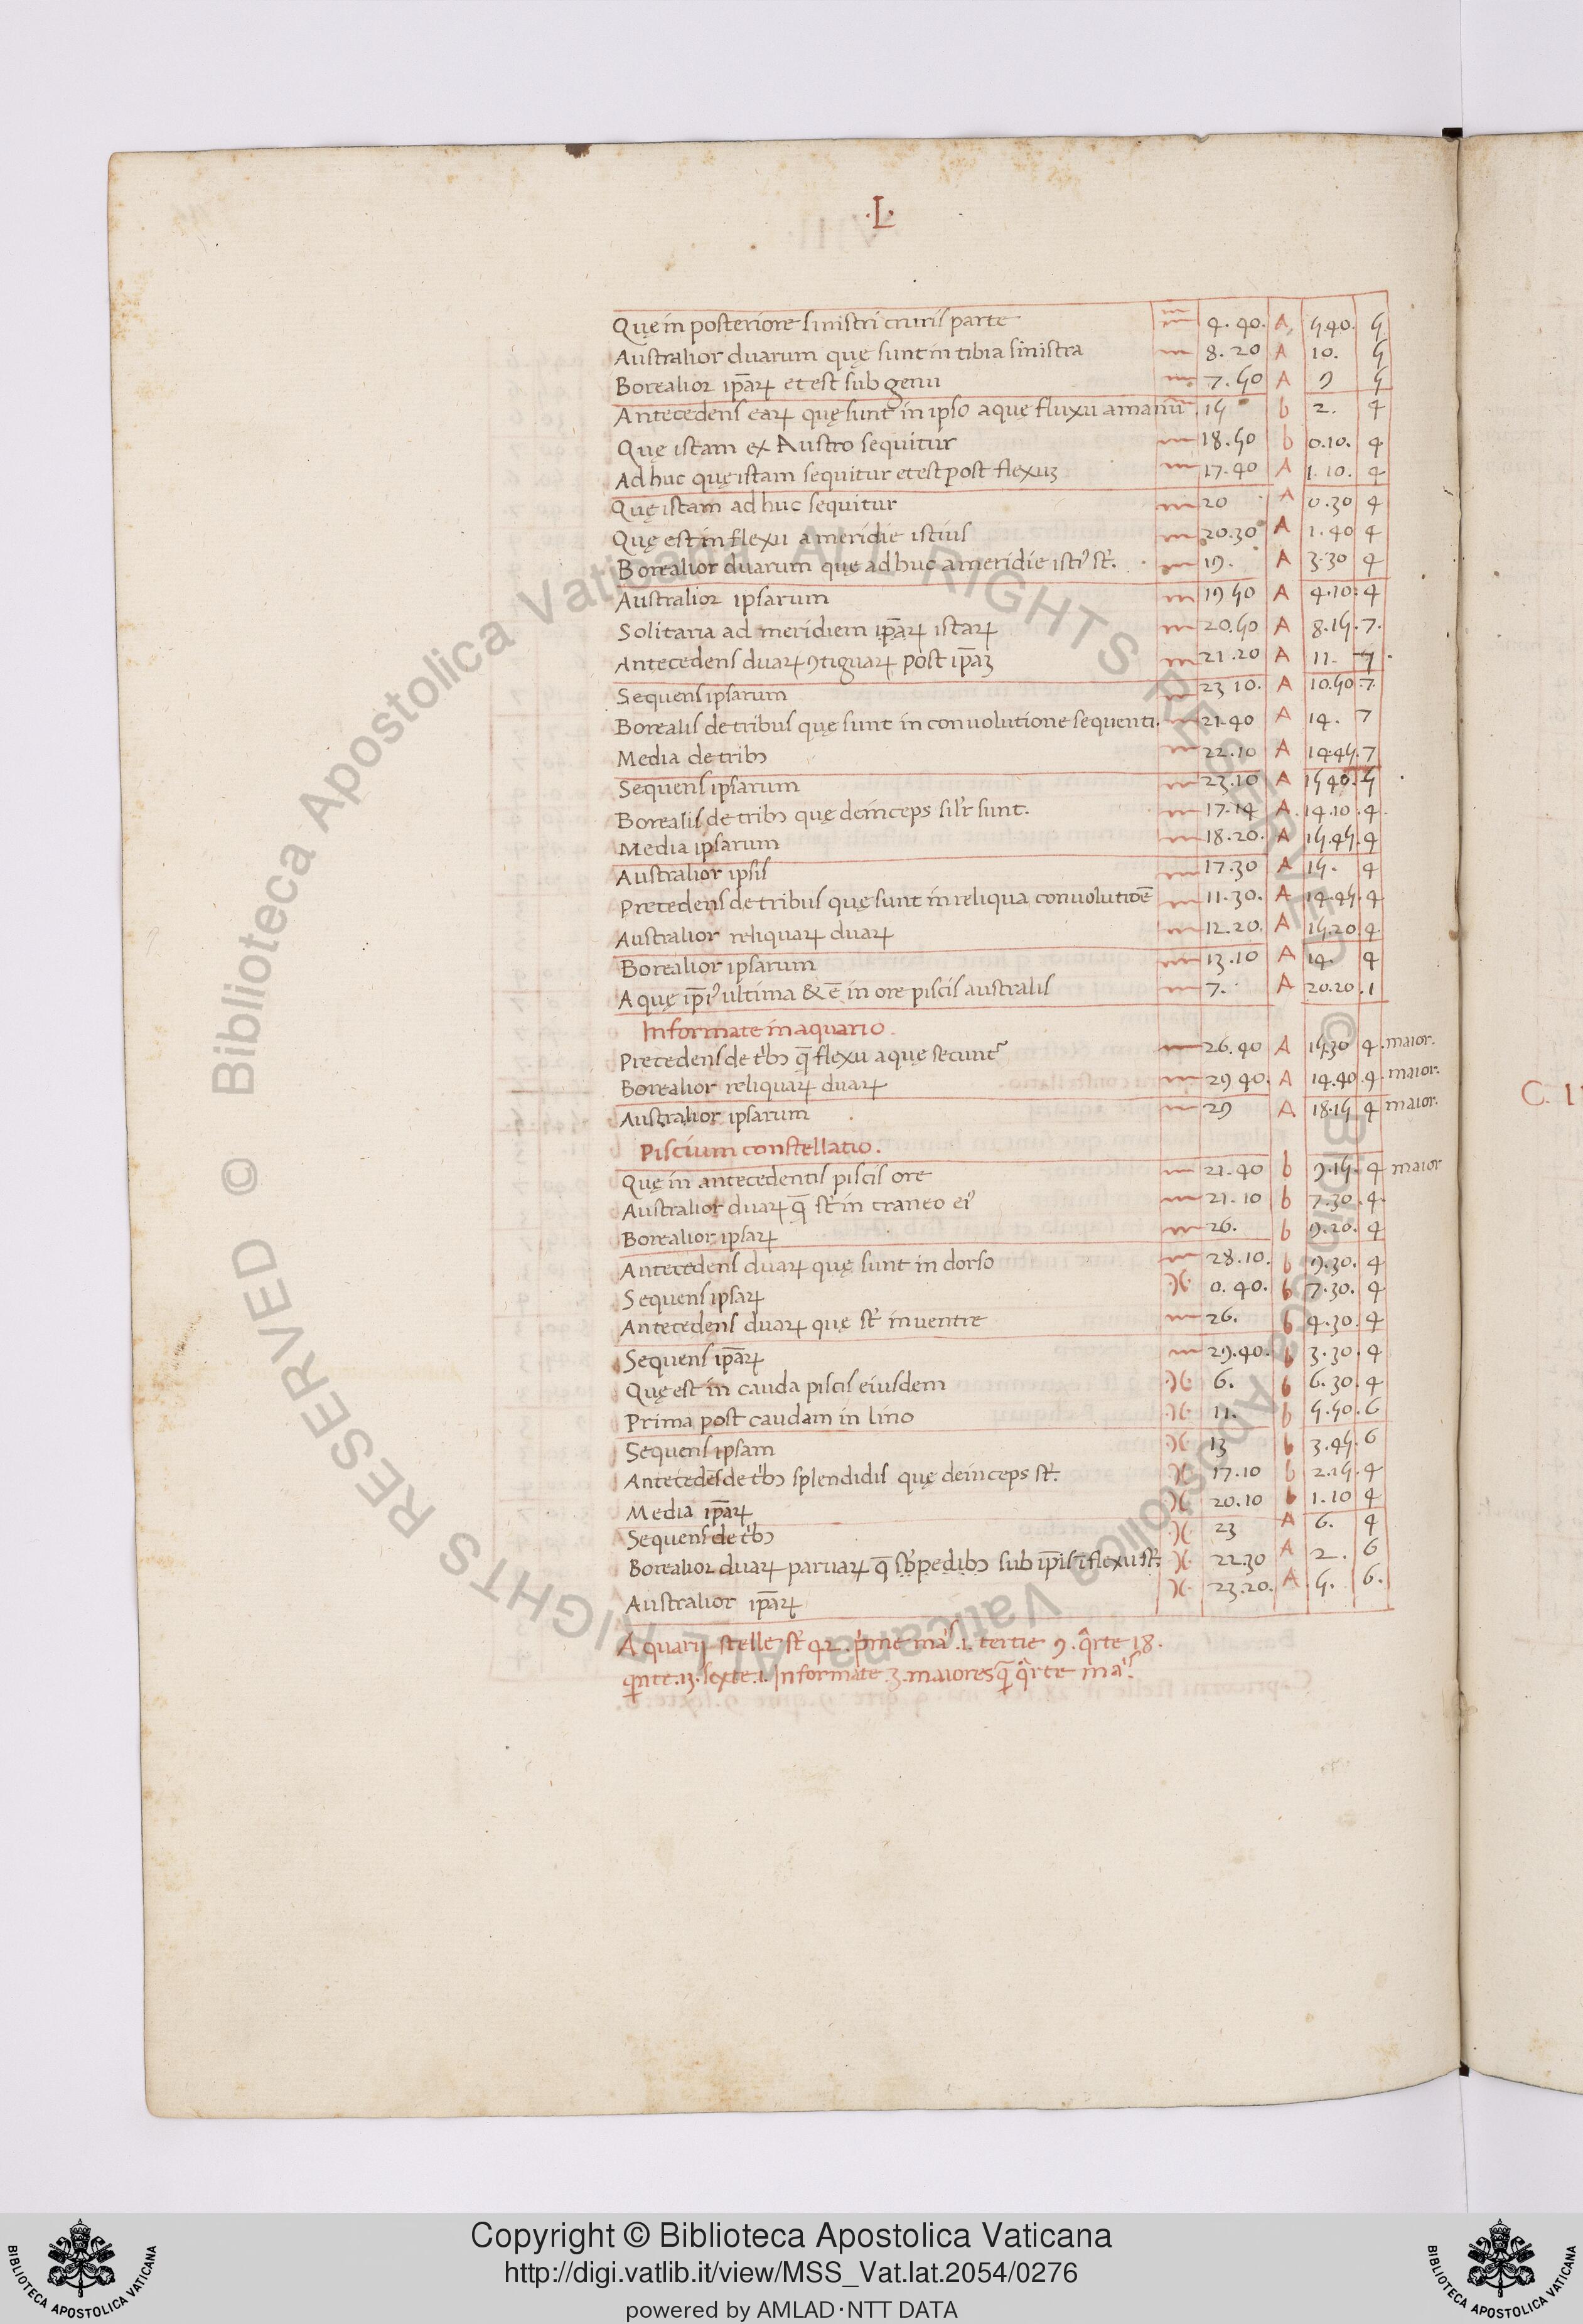 .L.
Quę in posteriore sinistri cruris parte ♒ 4.40. A 5.40. 5
Australior duarum quę sunt in tibia sinistra ♒ 8.20 A 10. 5
Borealior ip̄aꝝ et est sub genu ♒ 7.50 A 9 5
Antecedens eaꝝ quę sunt in ipso aquę fluxu a manu ♒ 15 b 2. 4
Quę istam ex Austro sequitur ♒ 18.50 b 0.10. 4
Ad huc quę istam sequitur et est post flexuꝫ ♒ 17.40 A 1.10. 4
Quę istam ad huc sequitur ♒ 20 A 0.30 4
Quę est in flexu a meridie istius ♒ 20.30 A 1.40 4
Borealior duarum quę ad huc a meridie istiꝰ st̄. ♒ 19. A 3.30 4
Australior ipsarum ♒ 19 50 A 4.10. 4
Solitaria ad meridiem ip̄aꝝ istaꝝ ♒ 20.50 A 8.15. 7.
Antecedens duaꝝ ꝯtiguaꝝ post ip̄aꝫ ♒ 21.20 A 11.
Sequens ipsarum ♒ 23 10. A 10.50. 7.
Borealis de tribus quę sunt in convolutione sequenti. ♒ 21.40 A 14. 7
Media de tribꝫ ♒ 22.10 A 14.45. 7
Sequens ipsarum ♒ 23.10 A 15 40. 5
Borealis de tribꝫ quę deinceps sil'r sunt. ♒ 17.14 A 14.10. 4.
Media ipsarum ♒ 18.20. A 15.45. 4
Australior ipsis ♒ 17.30 A 15. 4
Precedens de tribus quę sunt in reliqua convolutōe ♒ 11.30. A 14.45. 4
Australior reliquaꝝ duaꝝ ♒ 12.20. A 15.20 4
Borealior ipsarum ♒ 13.10 A 14. 4
Aquę ip̄iꝰ ultima & ē in ore piscis australis ♒ 7. A 20.20. 1
Informate in aquario.
Precedens de t'bꝫ q̄ flexu aque secunt̃ ♒ 26.40 A 15.30 4. maior.
Borealior reliquaꝝ duaꝝ ♒ 29 40. A 14.40. 4. maior.
Australior ipsarum ♒ 29 A 18.15 4 maior.
Piscium constellatio.
Quę in antecedentis piscis ore ♒ 21.40 b 9.15. 4 maior
Australior duaꝝ q̄ st̄ in craneo eiꝰ ♒ 21.10 b 7.30. 4.
Borealior ipsaꝝ ♒ 26. b 9.20. 4
Antecedens duaꝝ quę sunt in dorso ♒ 28.10. b 9.30. 4
Sequens ipsaꝝ ♓ 0.40. b 7.30. 4
Antecedens duaꝝ que st̄ in ventre ♒ 26. b 4.30. 4
Sequens ip̄aꝝ ♒ 29.40. b 3.30. 4
Quę est in cauda piscis eiusdem ♓ 6. b 6.30. 4
Prima post caudam in lino ♓ 11. b 5.50. 6
Sequens ipsam ♓ 13 b 3.45. 6
Antecedēs de t'bꝫ splendidis quę deinceps st̄. ♓ 17.10 b 2.15. 4
Media ip̄aꝝ ♓ 20.10 b 1.10 4
Sequens de t'bꝫ ♓ 23 A 6. 4
Borealior duaꝝ parvaꝝ q̄ sub ip̄is ī flexu st̄. ♓ 22.30 A 2. 6
Australior ip̄aꝝ ♓ 23.20. A 5. 6.
Aquarij stelle st̄ 42. p'me ma'. 1. tertie 9. q̃rte 18.
qu̇nte. 13. sexte. 1. Informate. 3. maiores q̃ q̃rte ma'.
C. 1
Copyright © Biblioteca Apostolica Vaticana
http://digi.vatlib.it/view/MSS_Vat.lat.2054/0276
powered by AMLAD·NTT DATA
BIBLIOTECA APOSTOLICA VATICANA
BIBLIOTECA APOSTOLICA VATICANA
© Biblioteca Apostolica Vaticana ALL RIGHTS RESERVED © Biblioteca Apostolica Vaticana ALL RIGHTS RESERVED